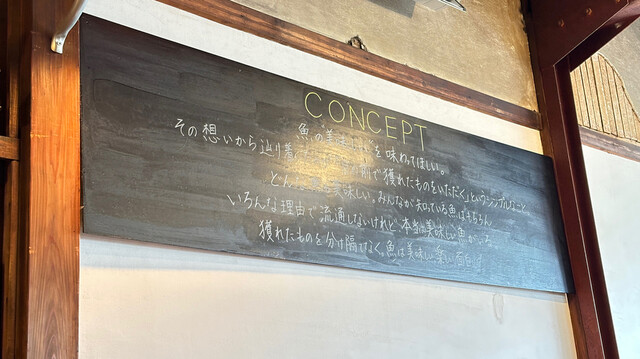 CONCEPT
魚の美味しさを味わってほしい。
その想いから辿り着 前で獲れたものをいただく」というシンプルなこと。
どん 美味しい。みんなが知っている魚はもちろん
いろんな理由で流通しないけれど本当に美味しい魚がいる。
獲れたものを分け隔てなく、魚は美味しい楽しい面白い